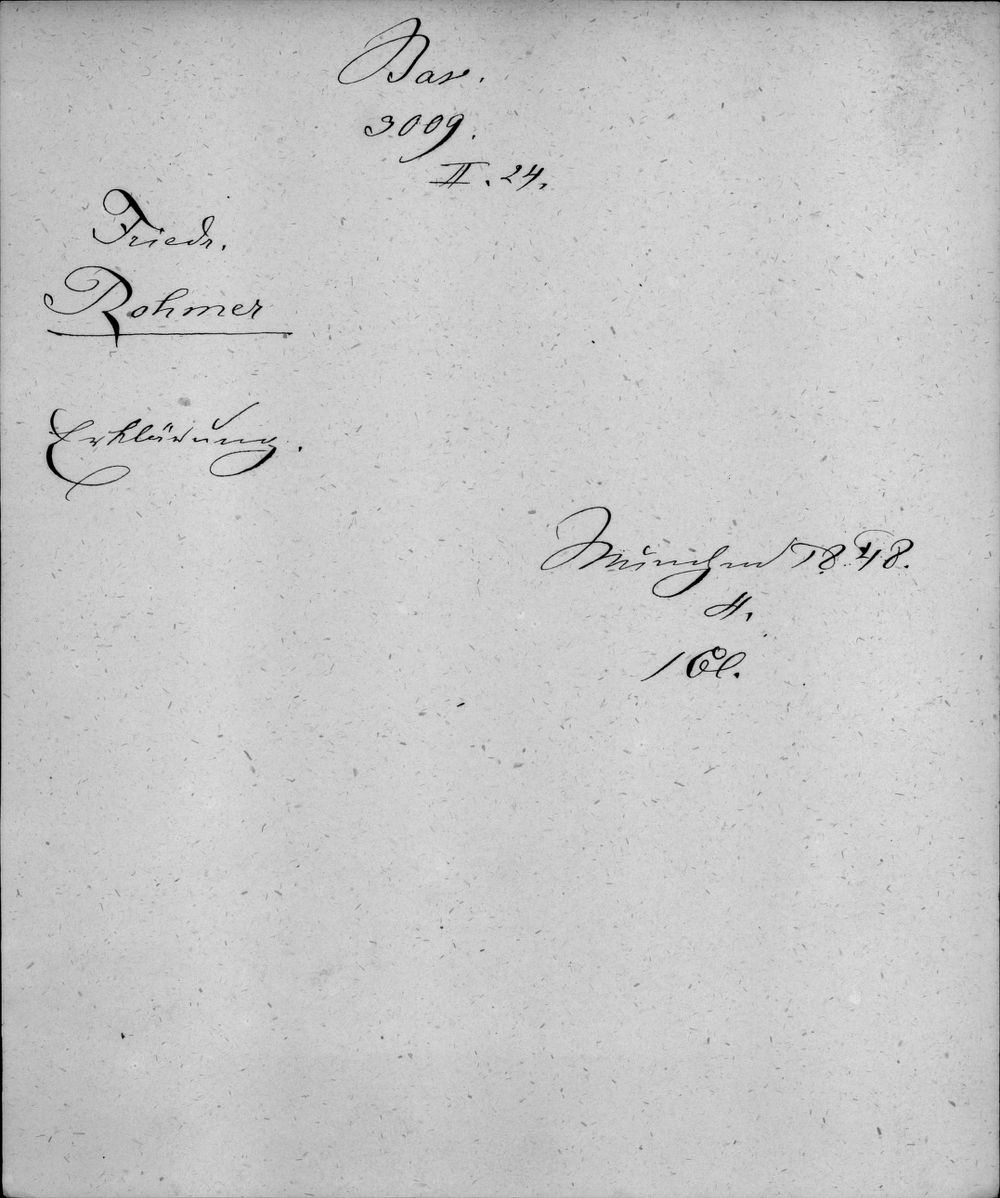 Bav.
3009.
II. 24.
Friedr.
Rohmer
Erklärung.
München 1848.
4.
1 Bl.